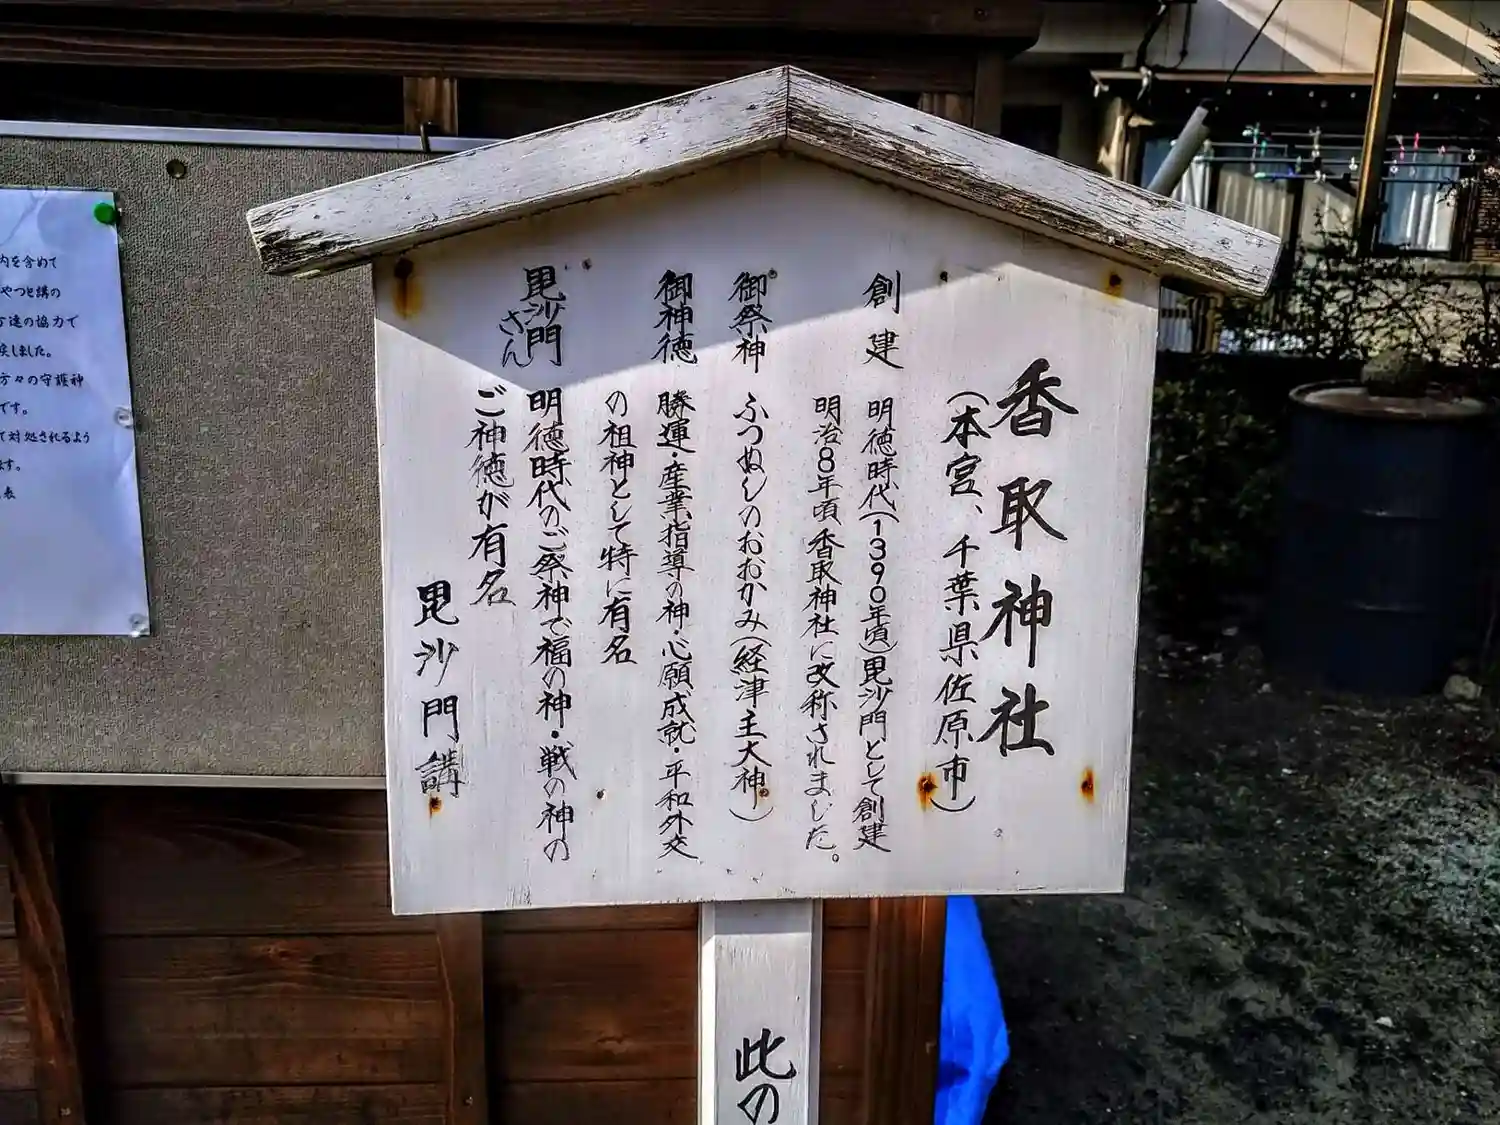 香取神社
(本宮、千葉県佐原市)
創建
明徳時代(1390年頃)毘沙門として創建
明治8年頃香取神社に改称されました。
御祭神
ふつぬしのおおかみ(経津主大神)
御神徳
勝運・産業指導の神・心願成就・平和外交
の祖神として特に有名
毘沙門さん
明徳時代のご祭神で福の神・戦の神の
ご神徳が有名
毘沙門講
此の
内を含めて
やつと講の
方達の協力で
しました。
方々の守護神
です。
て対処されるよう
ます。